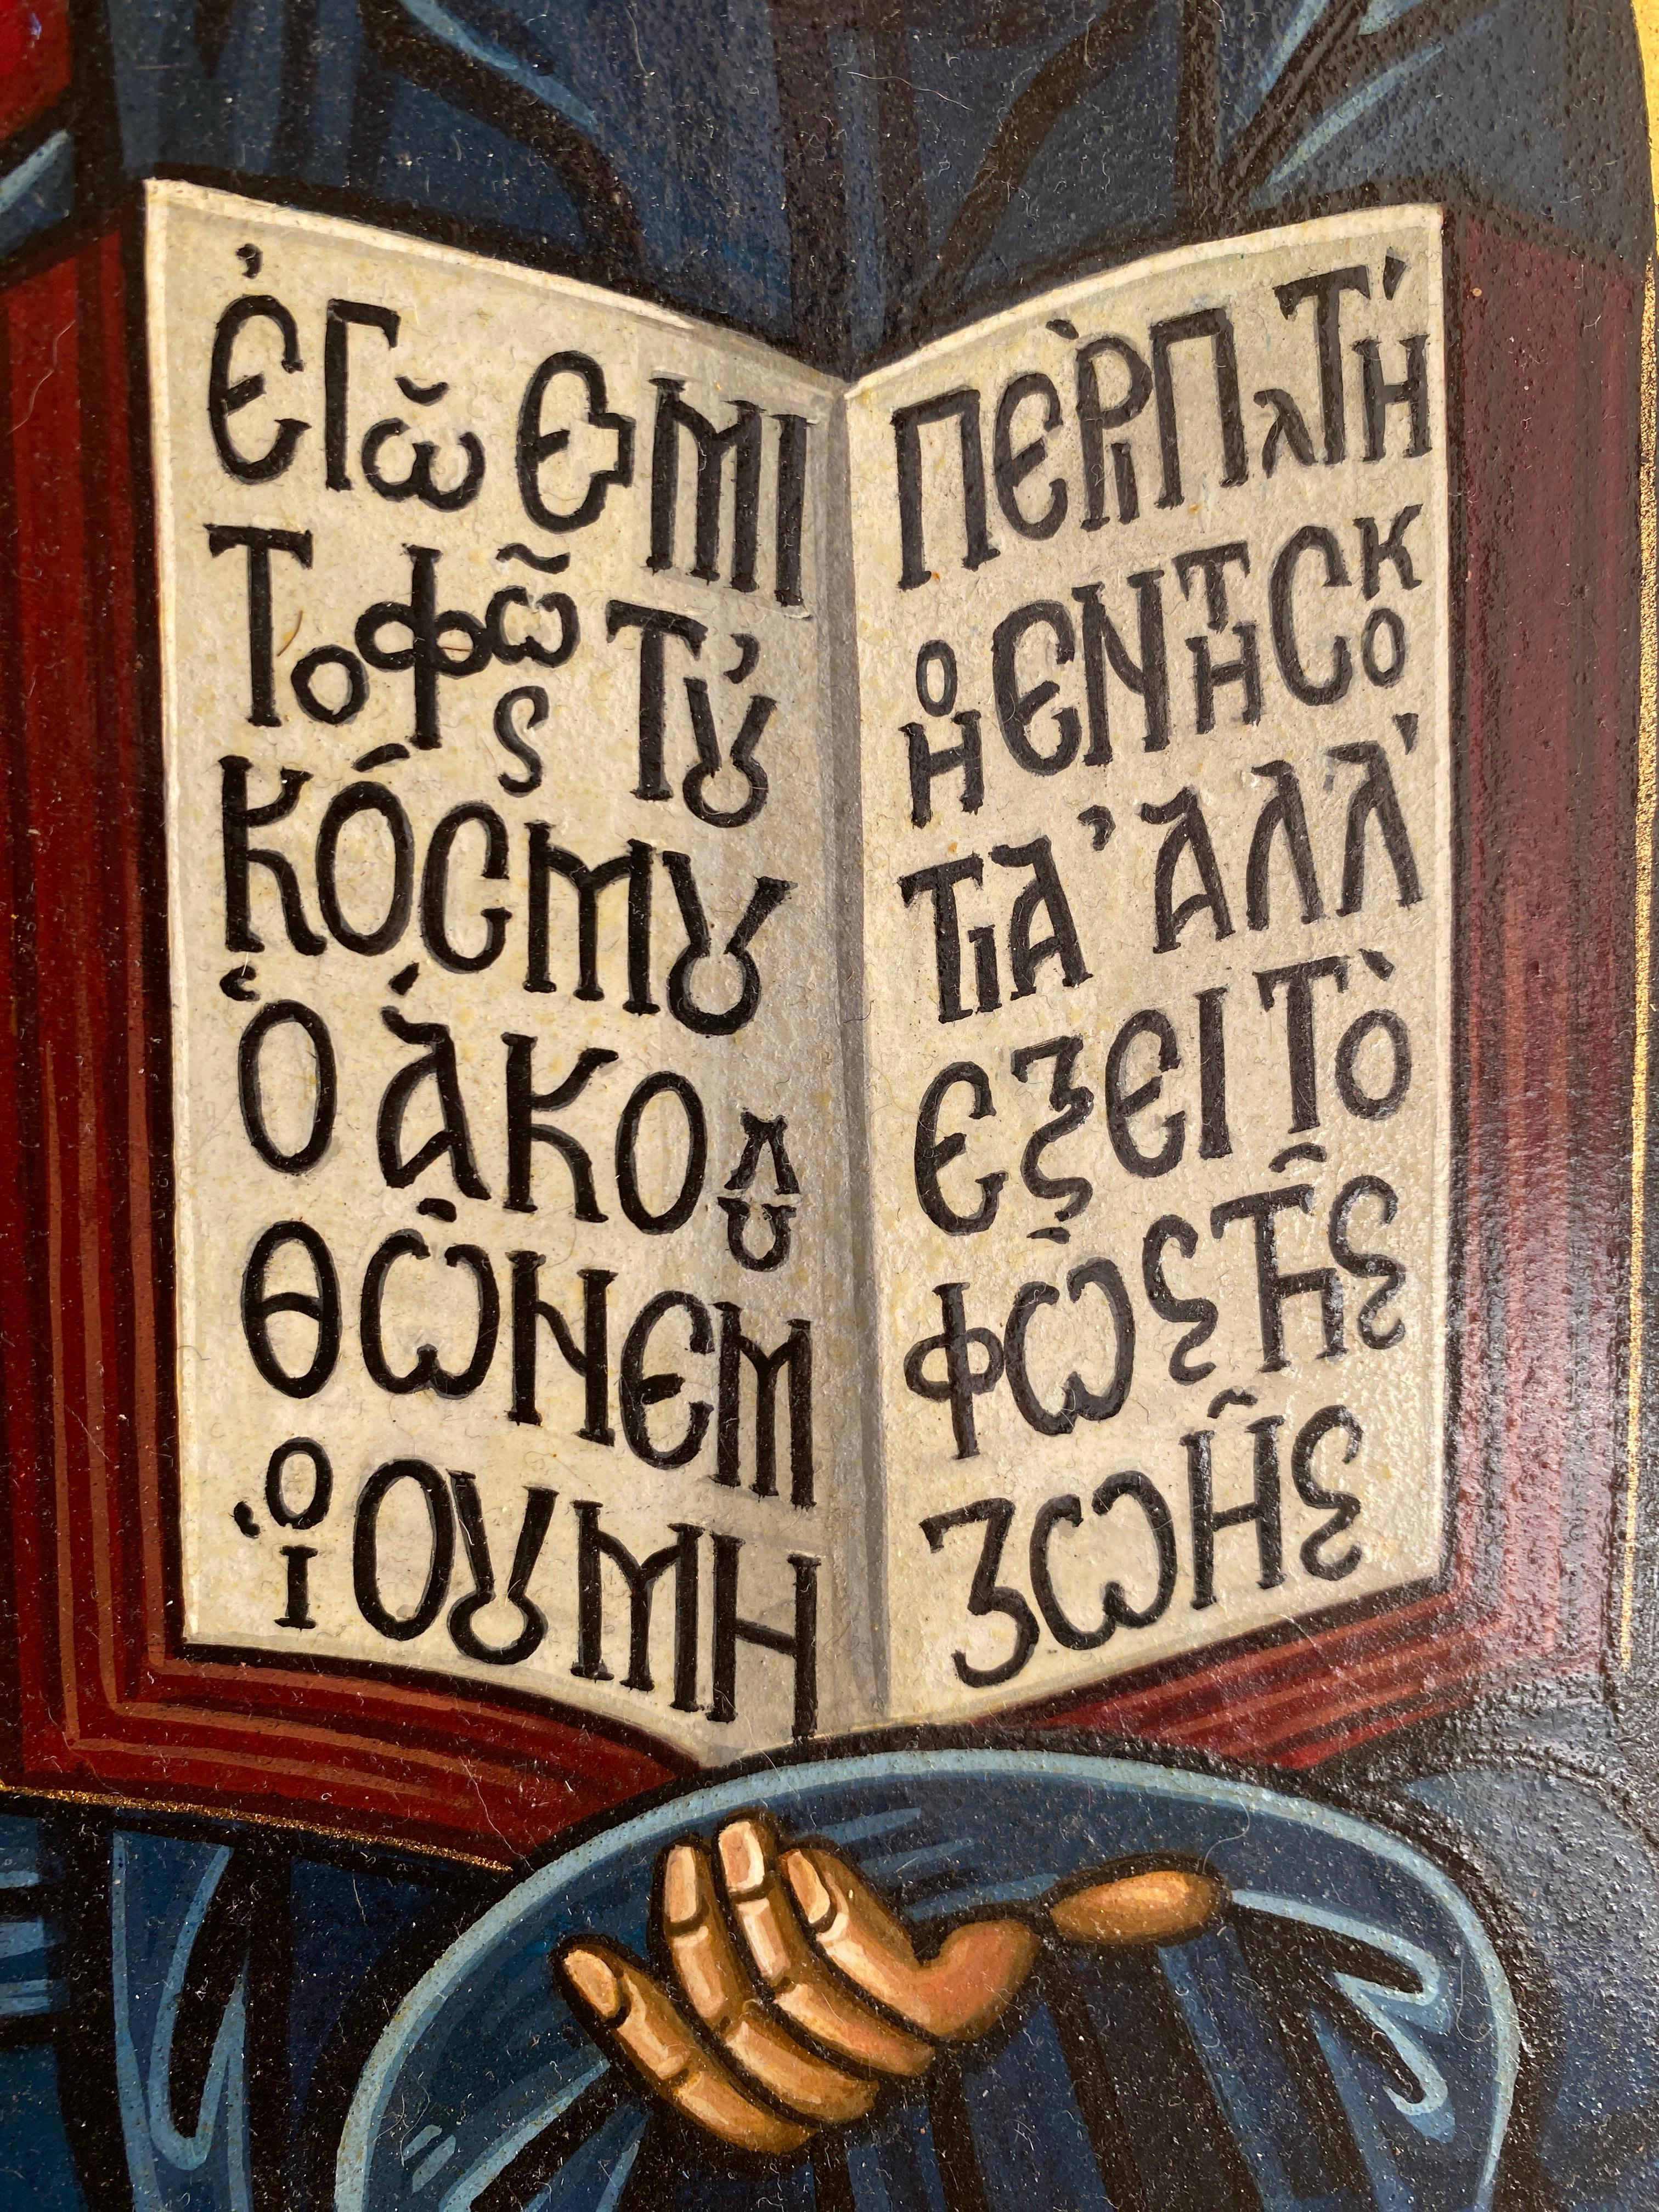 ἐΓῶ ЄἰΜΙ
Το φῶς Τȣ́
ΚόCΜȣ
Ὁ ἀΚΟΛΥ
ΘῶΝ ЄΜ
Οἱ Οὐ ΜΗ
ΠЄΡΙΠΑΤΉ
CΗ ЄΝ ΤΗ CΚΟ
ΤΙᾼ ἈΛΛ'
ЄξЄΙ Τὸ
φῶς Τῆς
ΖωῆC